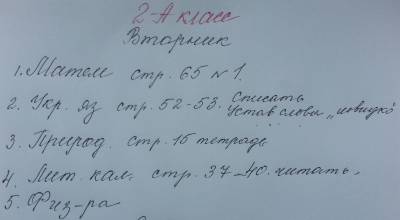 2-А класс
Вторник
1. Матем стр. 65 № 1.
2. Укр. яз стр. 52-53. Списать
Устав слова „швидко"
3. Природ. стр. 16 тетрадь
4. Лит. кал. стр. 37-40. читать.
5. Физ-ра